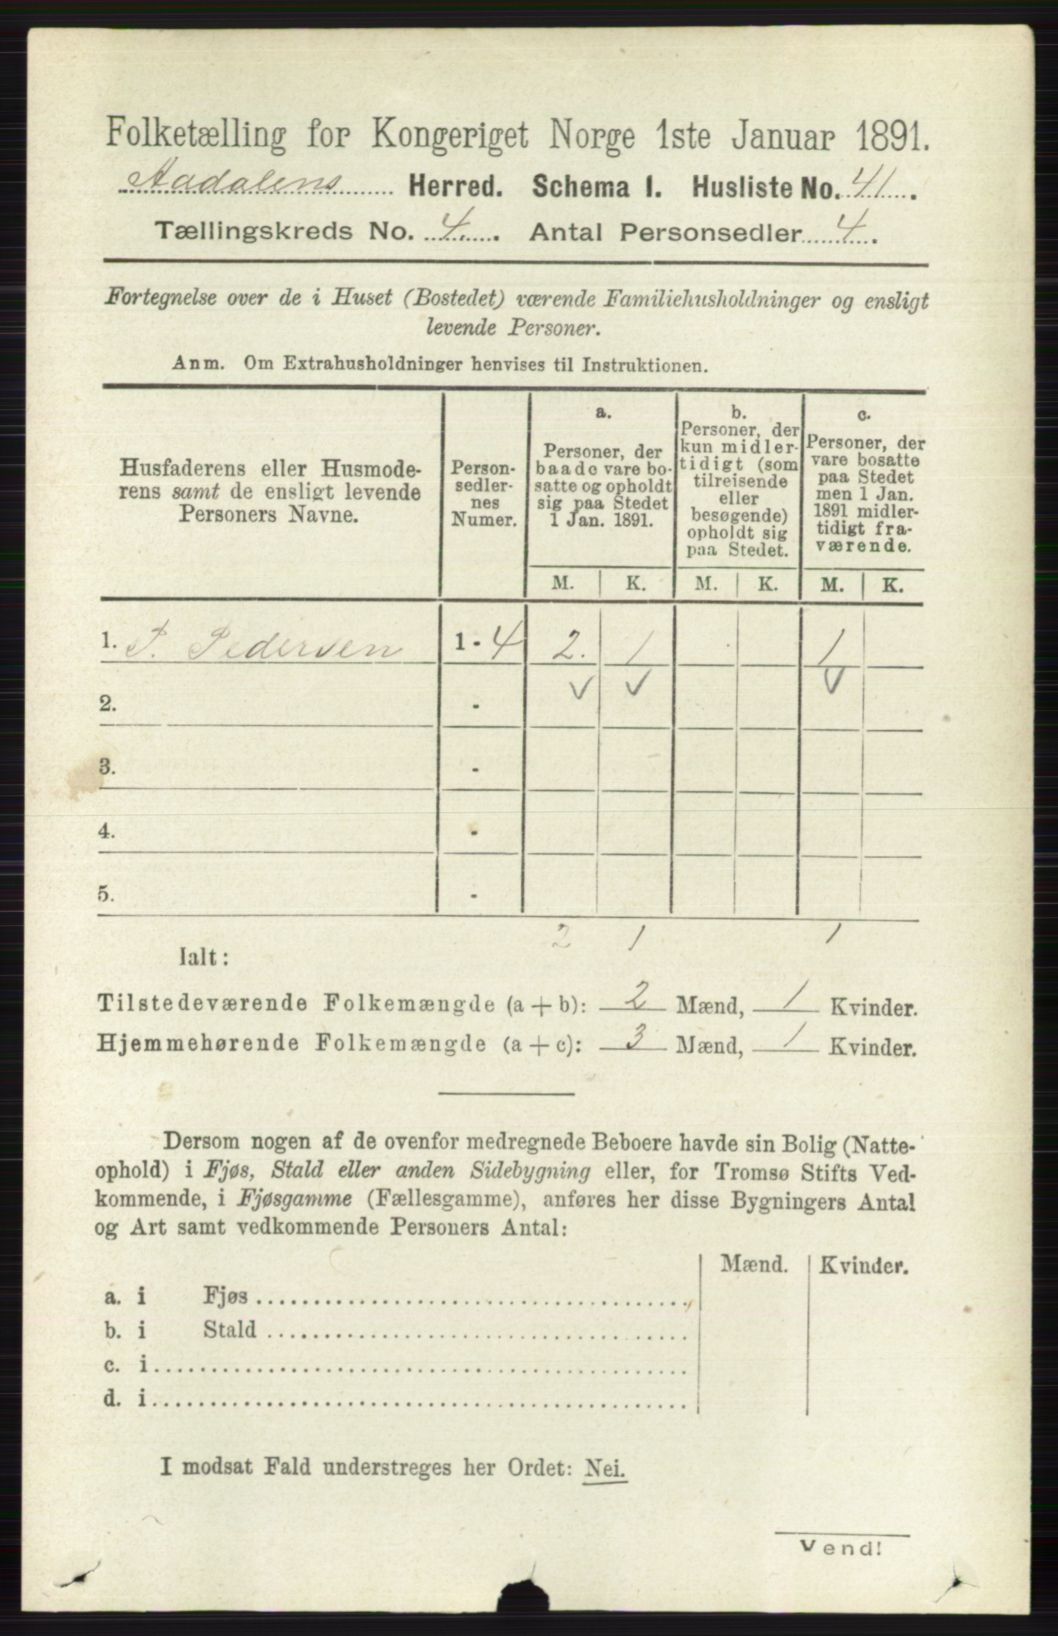 Folketælling for Kongeriget Norge 1ste Januar 1891.
Aadalens Herred. Schema 1. Husliste No. 41.
Tællingskreds No. 4. Antal Personsedler 4.
Fortegnelse over de i Huset (Bostedet) værende Familiehusholdninger og ensligt
levende Personer.
Anm. Om Extrahusholdninger henvises til Instruktionen.
Husfaderens eller Husmode-
rens samt de ensligt levende
Personers Navne.
Person-
sedler-
nes
Numer.
a.
Personer, der
baade vare bo-
satte og opholdt
sig paa Stedet
1 Jan. 1891.
b.
Personer, der
kun midler-
tidigt (som
tilreisende
eller
besøgende)
opholdt sig
paa Stedet.
c.
Personer, der
vare bosatte
paa Stedet
men 1 Jan.
1891 midler-
tidigt fra-
værende.
M. K. M. K. M. K.
1. P. Pedersen 1 - 4 2. 1 1
2. - V V V
3. -
4. -
5. -
2 1 1
Ialt:
Tilstedeværende Folkemængde (a + b): 2 Mænd, 1 Kvinder.
Hjemmehørende Folkemængde (a + c): 3 Mænd, 1 Kvinder.
Dersom nogen af de ovenfor medregnede Beboere havde sin Bolig (Natte-
ophold) i Fjøs, Stald eller anden Sidebygning eller, for Tromsø Stifts Ved-
kommende, i Fjøsgamme (Fællesgamme), anføres her disse Bygningers Antal
og Art samt vedkommende Personers Antal:
Mænd. Kvinder.
a. i Fjøs
b. i Stald
c. i
d. i
I modsat Fald understreges her Ordet: Nei.
Vend!